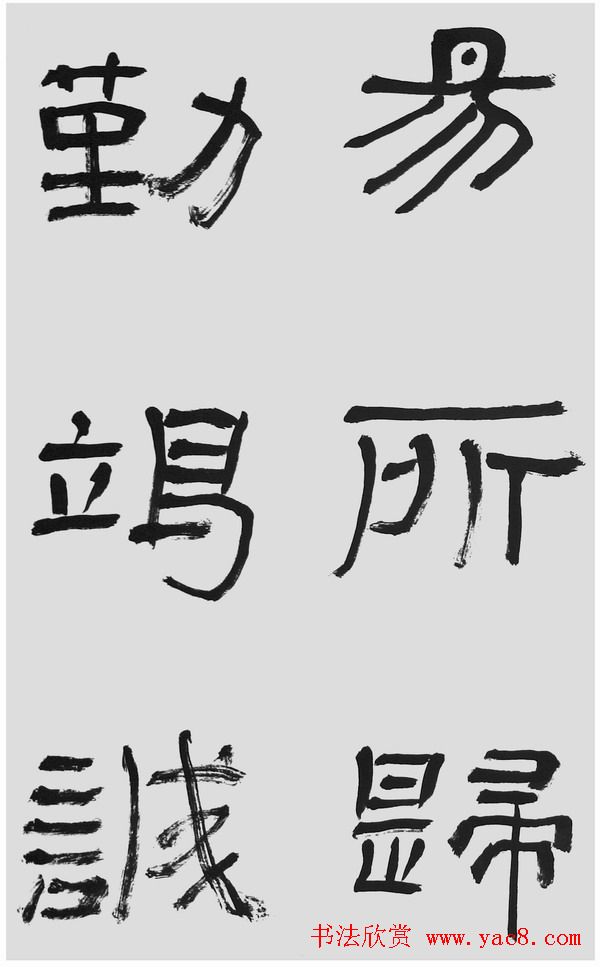 易所歸
勤竭誠
书法欣赏 www.yac8.com